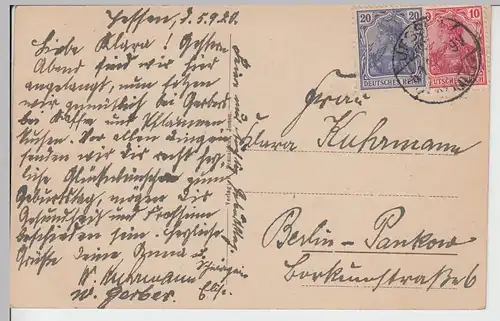 Hessen, d. 5.9.20.
Liebe Klara! Gestern
Abend sind wir hier
angelangt, nun sitzen
wir gemütlich bei Gerbers
bei Kaffe und Pflaumen
kuchen. Vor allen Dingen
senden wir dir recht herz
liche Glückwünsche zum
Geburtstag, mögen dir
Gesundheit und Frohsinn
beschieden sein. Herzliche
Grüsse deine Anna
W. Kuhrmann
W. Gerber.
Schwägerin
Elise
20 20
DEUTSCHES REICH
10
Frau
Clara Kuhrmann
Berlin-Pankow
Borkumstraße 6